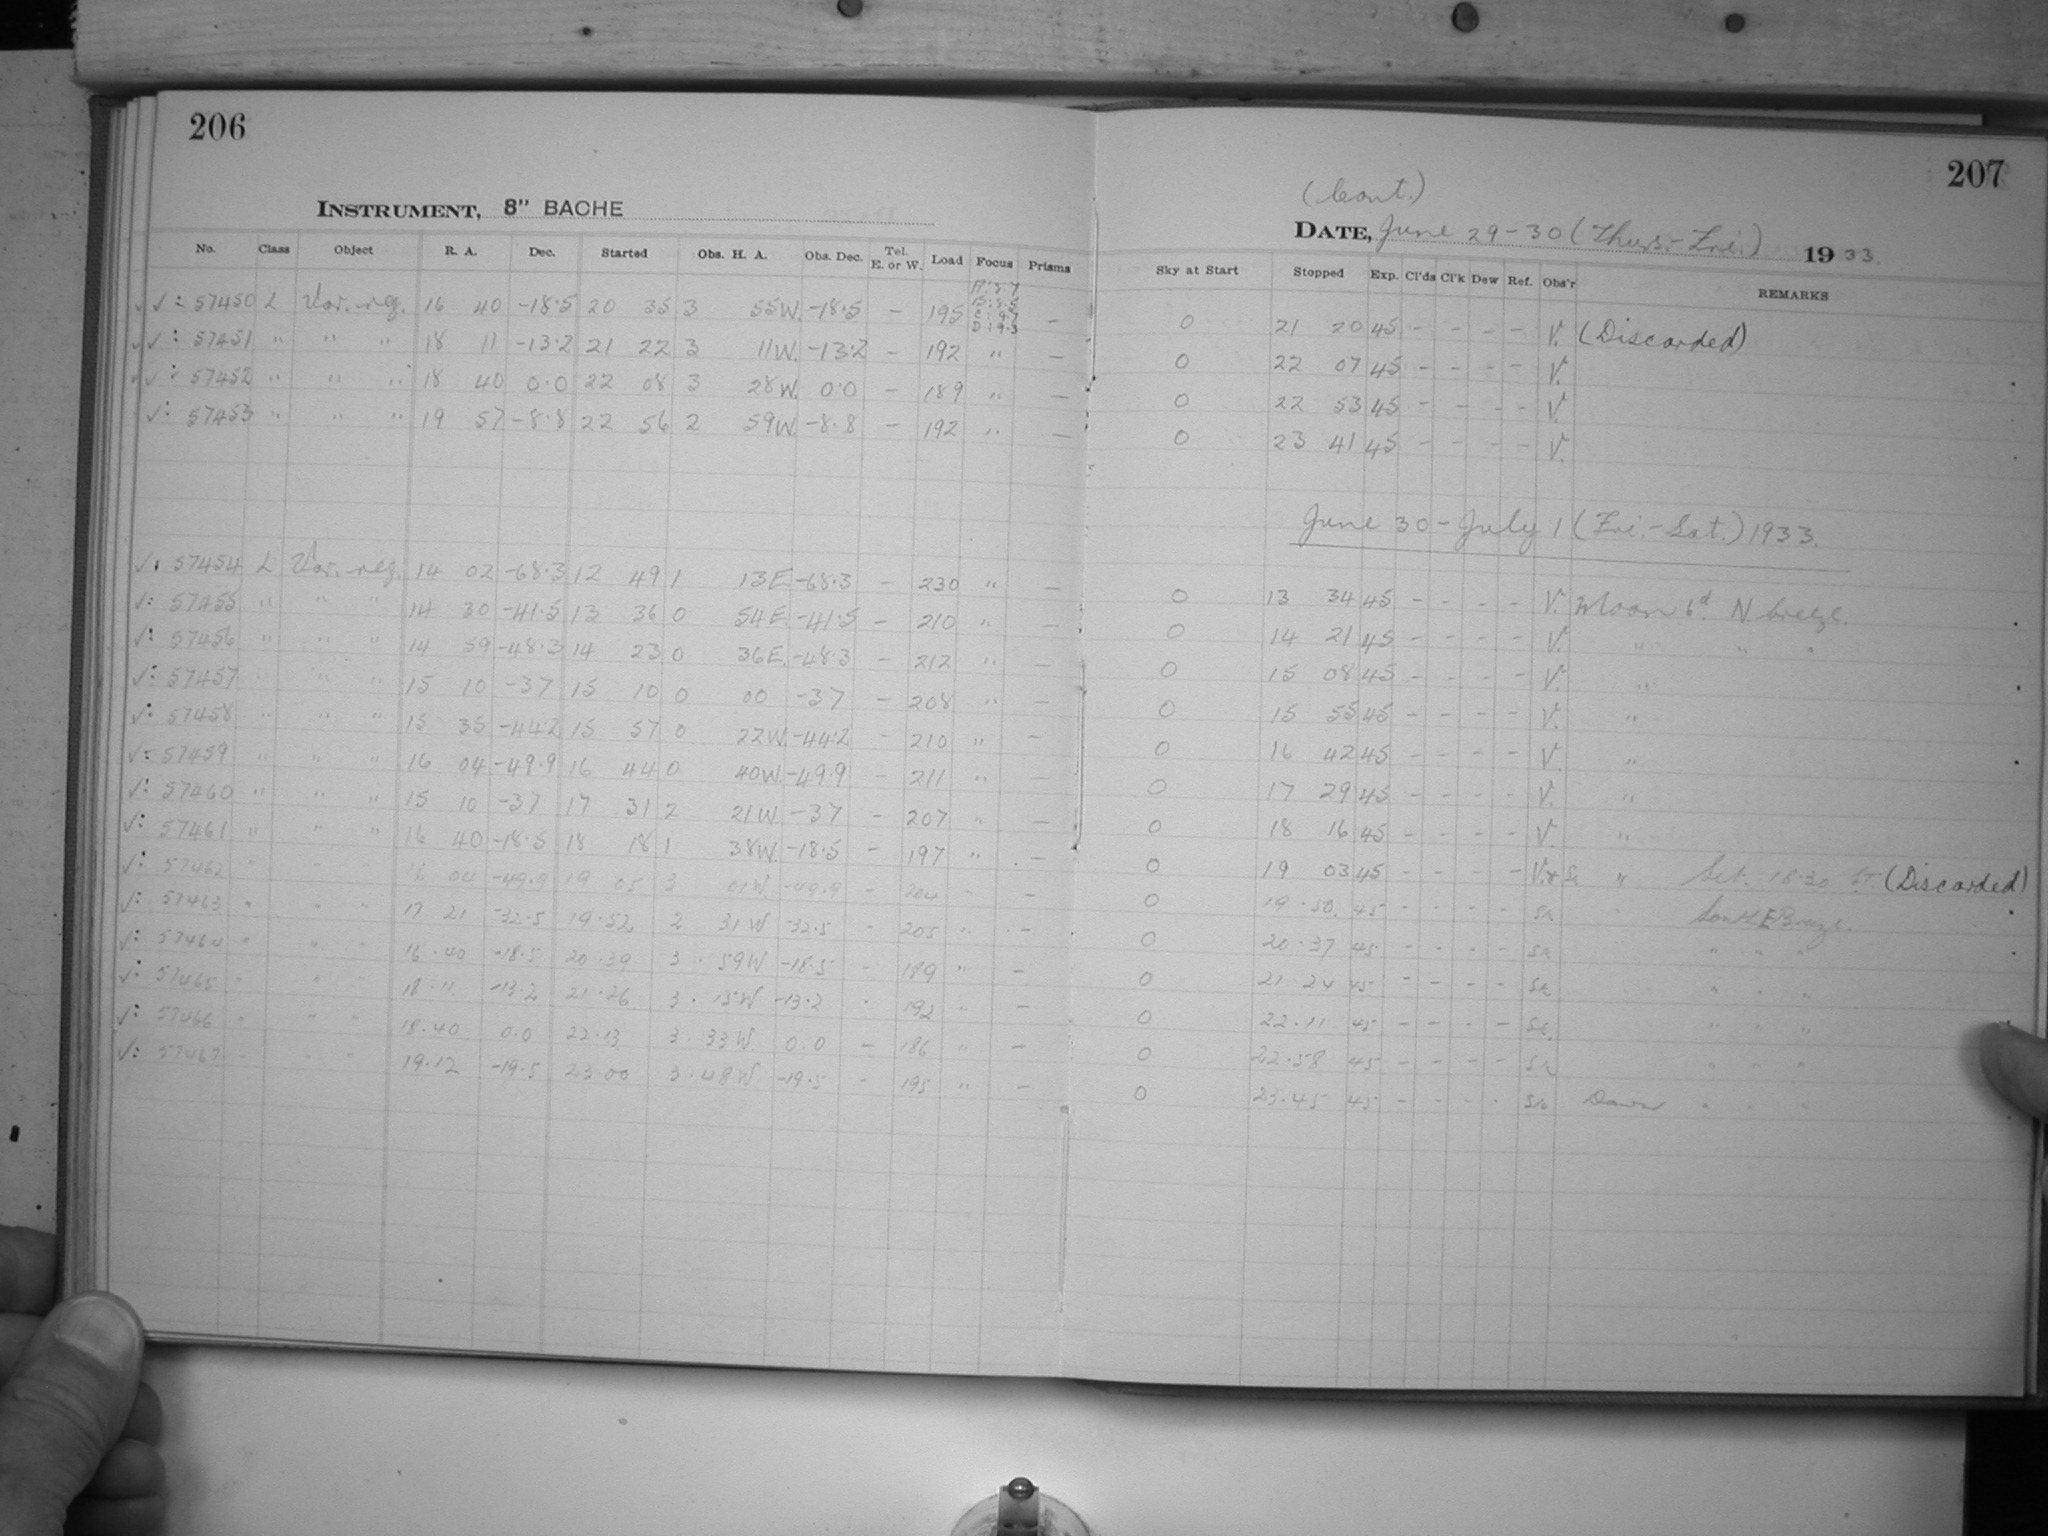 206
INSTRUMENT, 8" BACHE
No. Class Object R. A. Dec. Started Obs. H. A. Obs. Dec. Tel. E. or W. Load Focus Prisms
✓: 57450 L Var. reg. 16 40 -18.5 20 35 3 55W. -18.5 - 195 -
✓: 57451 " " " 18 11 -13.2 21 22 3 11W. -13.2 - 192 " -
✓: 57452 " " " 18 40 0.0 22 08 3 28W. 0.0 - 189 " -
✓: 57453 " " " 19 57 -8.8 22 56 2 59W. -8.8 - 192 " -
✓: 57454 L Var. reg. 14 02 -68.3 12 49 1 13E -68.3 - 230 " -
✓: 57455 " " " 14 30 -41.5 13 36 0 54E. -41.5 - 210 " -
✓: 57456 " " " 14 59 -48.3 14 23 0 36E. -48.3 - 212 " -
✓: 57457 " " " 15 10 -37 15 10 0 00 -37 - 208 " -
✓: 57458 " " " 15 35 -44.2 15 57 0 22W. -44.2 - 210 " -
✓: 57459 " " " 16 04 -49.9 16 44 0 40W. -49.9 - 211 " -
✓: 57460 " " " 15 10 -37 17 31 2 21W. -37 - 207 " -
✓: 57461 " " " 16 40 -18.5 18 18 1 38W. -18.5 - 197 " -
✓: 57462 " " 16 04 -49.9 19 05 3 01W -49.9 - 204 " -
✓: 57463 " " " 17 21 -32.5 19.52 2 31W -32.5 - 205 " -
✓: 57464 " " " 16.40 -18.5 20.39 3.59W -18.5 - 189 " -
✓: 57465 " " 18.11 -13.2 21.26 3.15W -13.2 - 192 " -
✓: 57466 " " " 18.40 0.0 22.13 3.33W. 0.0 - 186 " -
✓: 57467 " " " 19.12 -19.5 23.00 3.48W -19.5 - 195 " -
207
(Cont.)
DATE, June 29-30 (Thurs.-Fri.) 1933.
Sky at Start Stopped Exp. Cl'ds Cl'k Dew Ref. Obs'r REMARKS
0 21 20 45 - - - - V. (Discarded)
0 22 07 45 - - - - V.
0 22 53 45 - - - - V.
0 23 41 45 - - - - V.
June 30-July 1 (Fri.-Sat.) 1933.
0 13 34 45 - - - - V. Moon 6d. N breeze.
0 14 21 45 - - - - V. " " "
0 15 08 45 - - - - V. "
0 15 55 45 - - - - V. "
0 16 42 45 - - - - V. "
0 17 29 45 - - - - V. "
0 18 16 45 - - - - V. "
0 19 03 45 - - - - V. & " Set. 18.30 ST. (Discarded)
0 19.50. 45 - - - - South E Breeze.
0 20.37 45 - - - - " " "
0 21.24 45 - - - - " " "
0 22.11 45 - - - - " " "
0 22.58 45 - - - - " " "
0 23.45 45 - - - - Dawn " " "